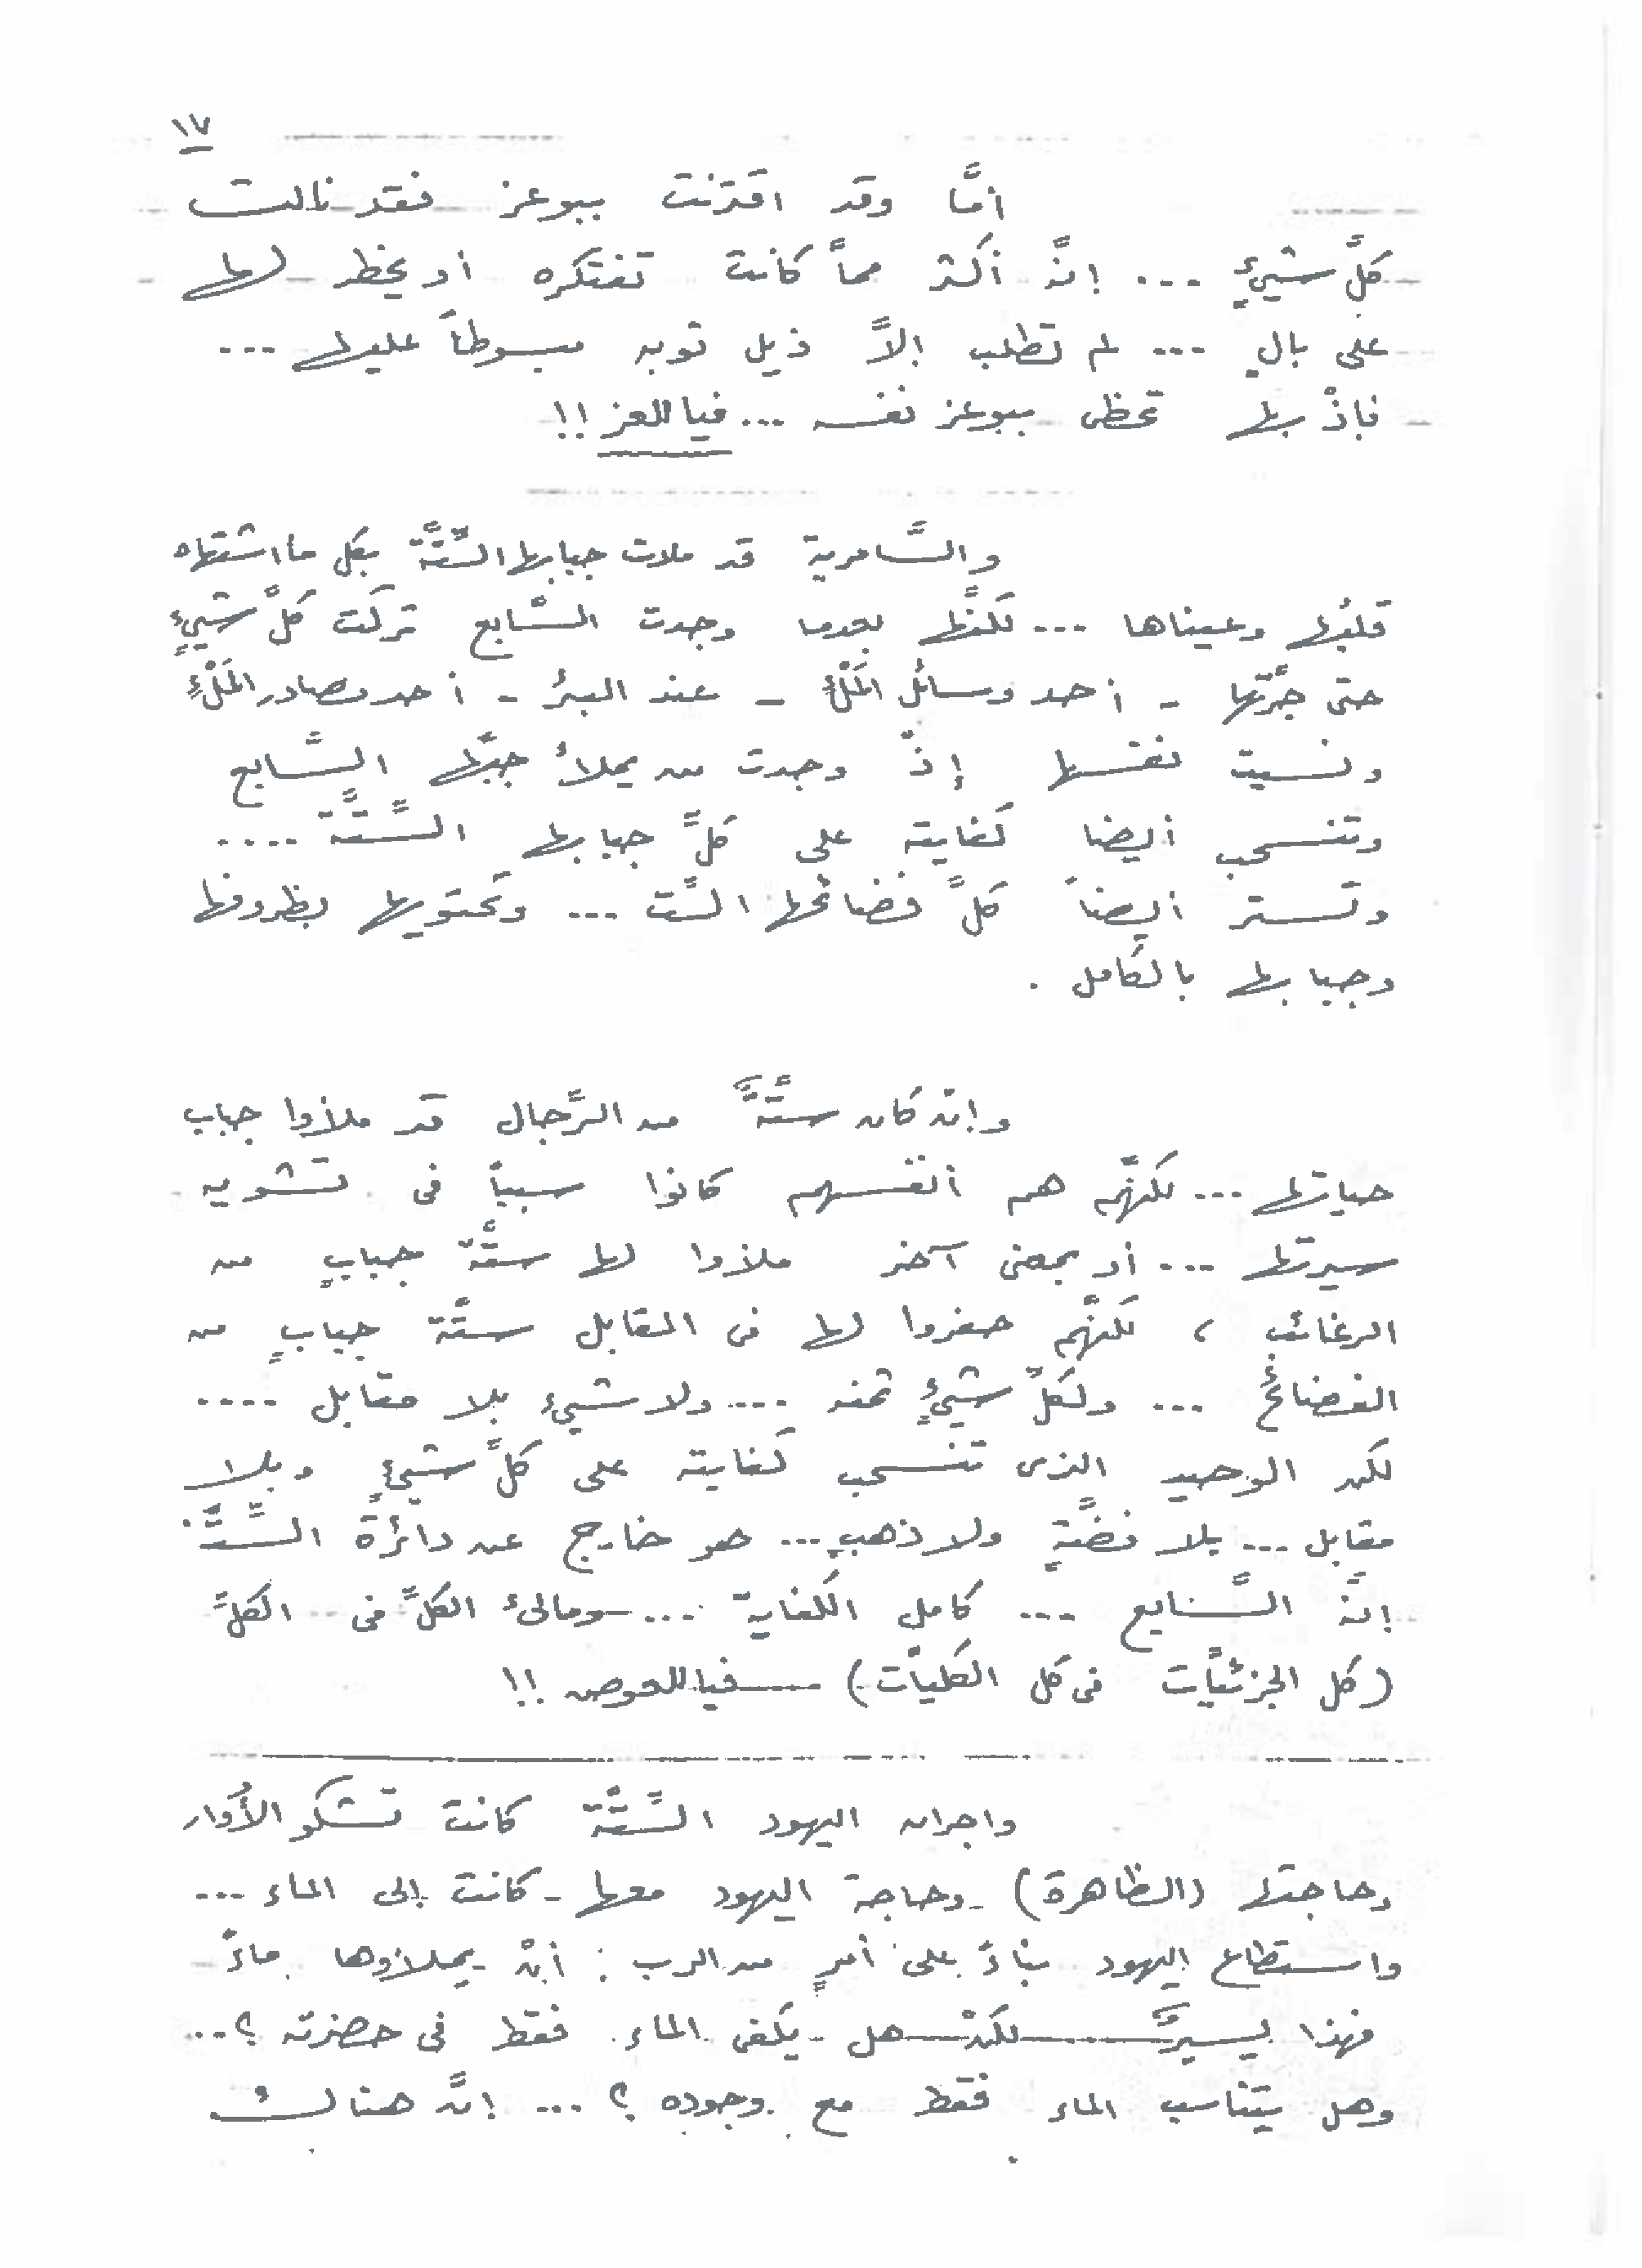 ١٧
أمَّا وقد اقترنت ببوعز فقد نالت
كلَّ شيءٍ ... إنَّ أكثر ممَّا كانت تفتكره أو يخطر لها
على بالٍ ... لم تطلب إلاَّ ذيل ثوبه مبسوطاً عليها ...
فإذْ بها تحظى ببوعز نفسه ... فيا للعز !!
والسَّامرية قد ملأت جبابها السِّتَّة بكل ما اشتهاه
قلبُها وعيناها ... لكنَّها بعدما وجدت السَّابع تركت كلَّ شيءٍ
حتى جرَّتها - أحد وسائل المَلْءِ - عند البئر - أحد مصادر المَلْءِ
ونسيت نفسها إذْ وجدت من يملأُ جبَّها السَّابع
وتنسحب أيضا كفايته على كلَّ جبابها السِّتَّة ....
وتستر أيضاً كلَّ فضائحها السِّت ... وتحتويها بظروفها
وجبابها بالكامل .
وإنْ كان ستَّةٌ من الرِّجال قد ملأوا جباب
حياتها ... لكنَّهم هم أنفسهم كانوا سبباً فى تشويه
سيرتها ... أو بمعنى آخر ملأوا لها ستَّة جبابٍ من
الرغائب ، لكنَّهم حفروا لها فى المقابل ستَّة جبابٍ من
الفضائح ... ولكلِّ شيءٍ ثمنه .... ولا شيء بلا مقابل ....
لكن الوحيد الذى تنسحب كفايته على كلِّ شيءٍ وبلا
مقابل ... بلا فضَّةٍ ولا ذهبٍ ... هو خارج عن دائرة السِّتَّة
إنَّه السَّابع ... كامل الكفاية .... ومالئ الكلِّ فى الكلِّ
(كل الجزئيَّات فى كل الكليَّات) فيا للعوض !!
واجران اليهود السِّتَّة كانت تشكو الأُوَار
وحاجتها (الظاهرة) - وحاجة اليهود معها - كانت إلى الماء ...
واستطاع اليهود بناءً على أمرٍ من الرب : أنْ يملأوها ماءً
فهذا يسيرٌ لكنْ هل يكفى الماء فقط فى حضرته ؟...
وهل يتناسب الماء فقط مع وجوده ؟ ... إنَّ هنالك